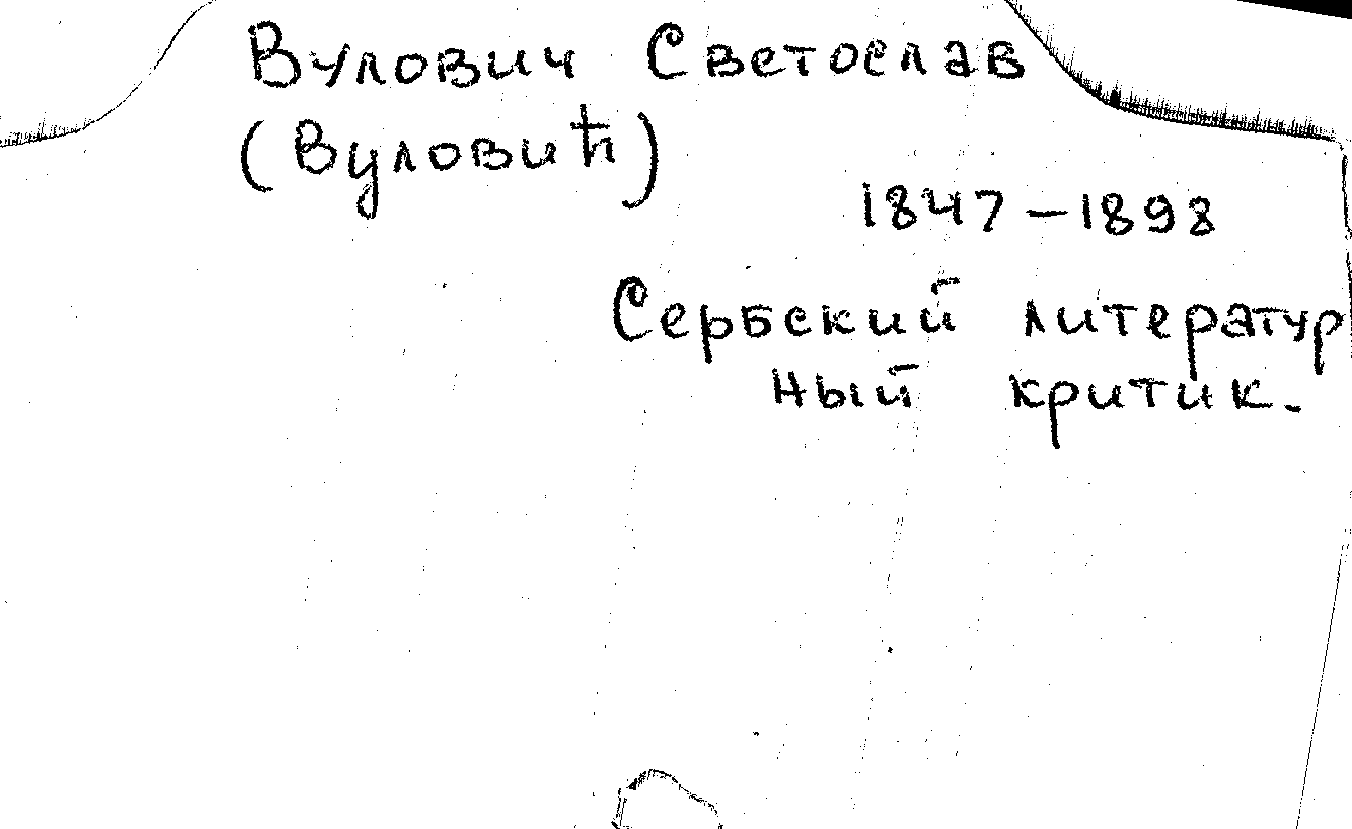 Вулович Светослав
(Вуловић)
1847-1898
Сербский литератур
ный критик.